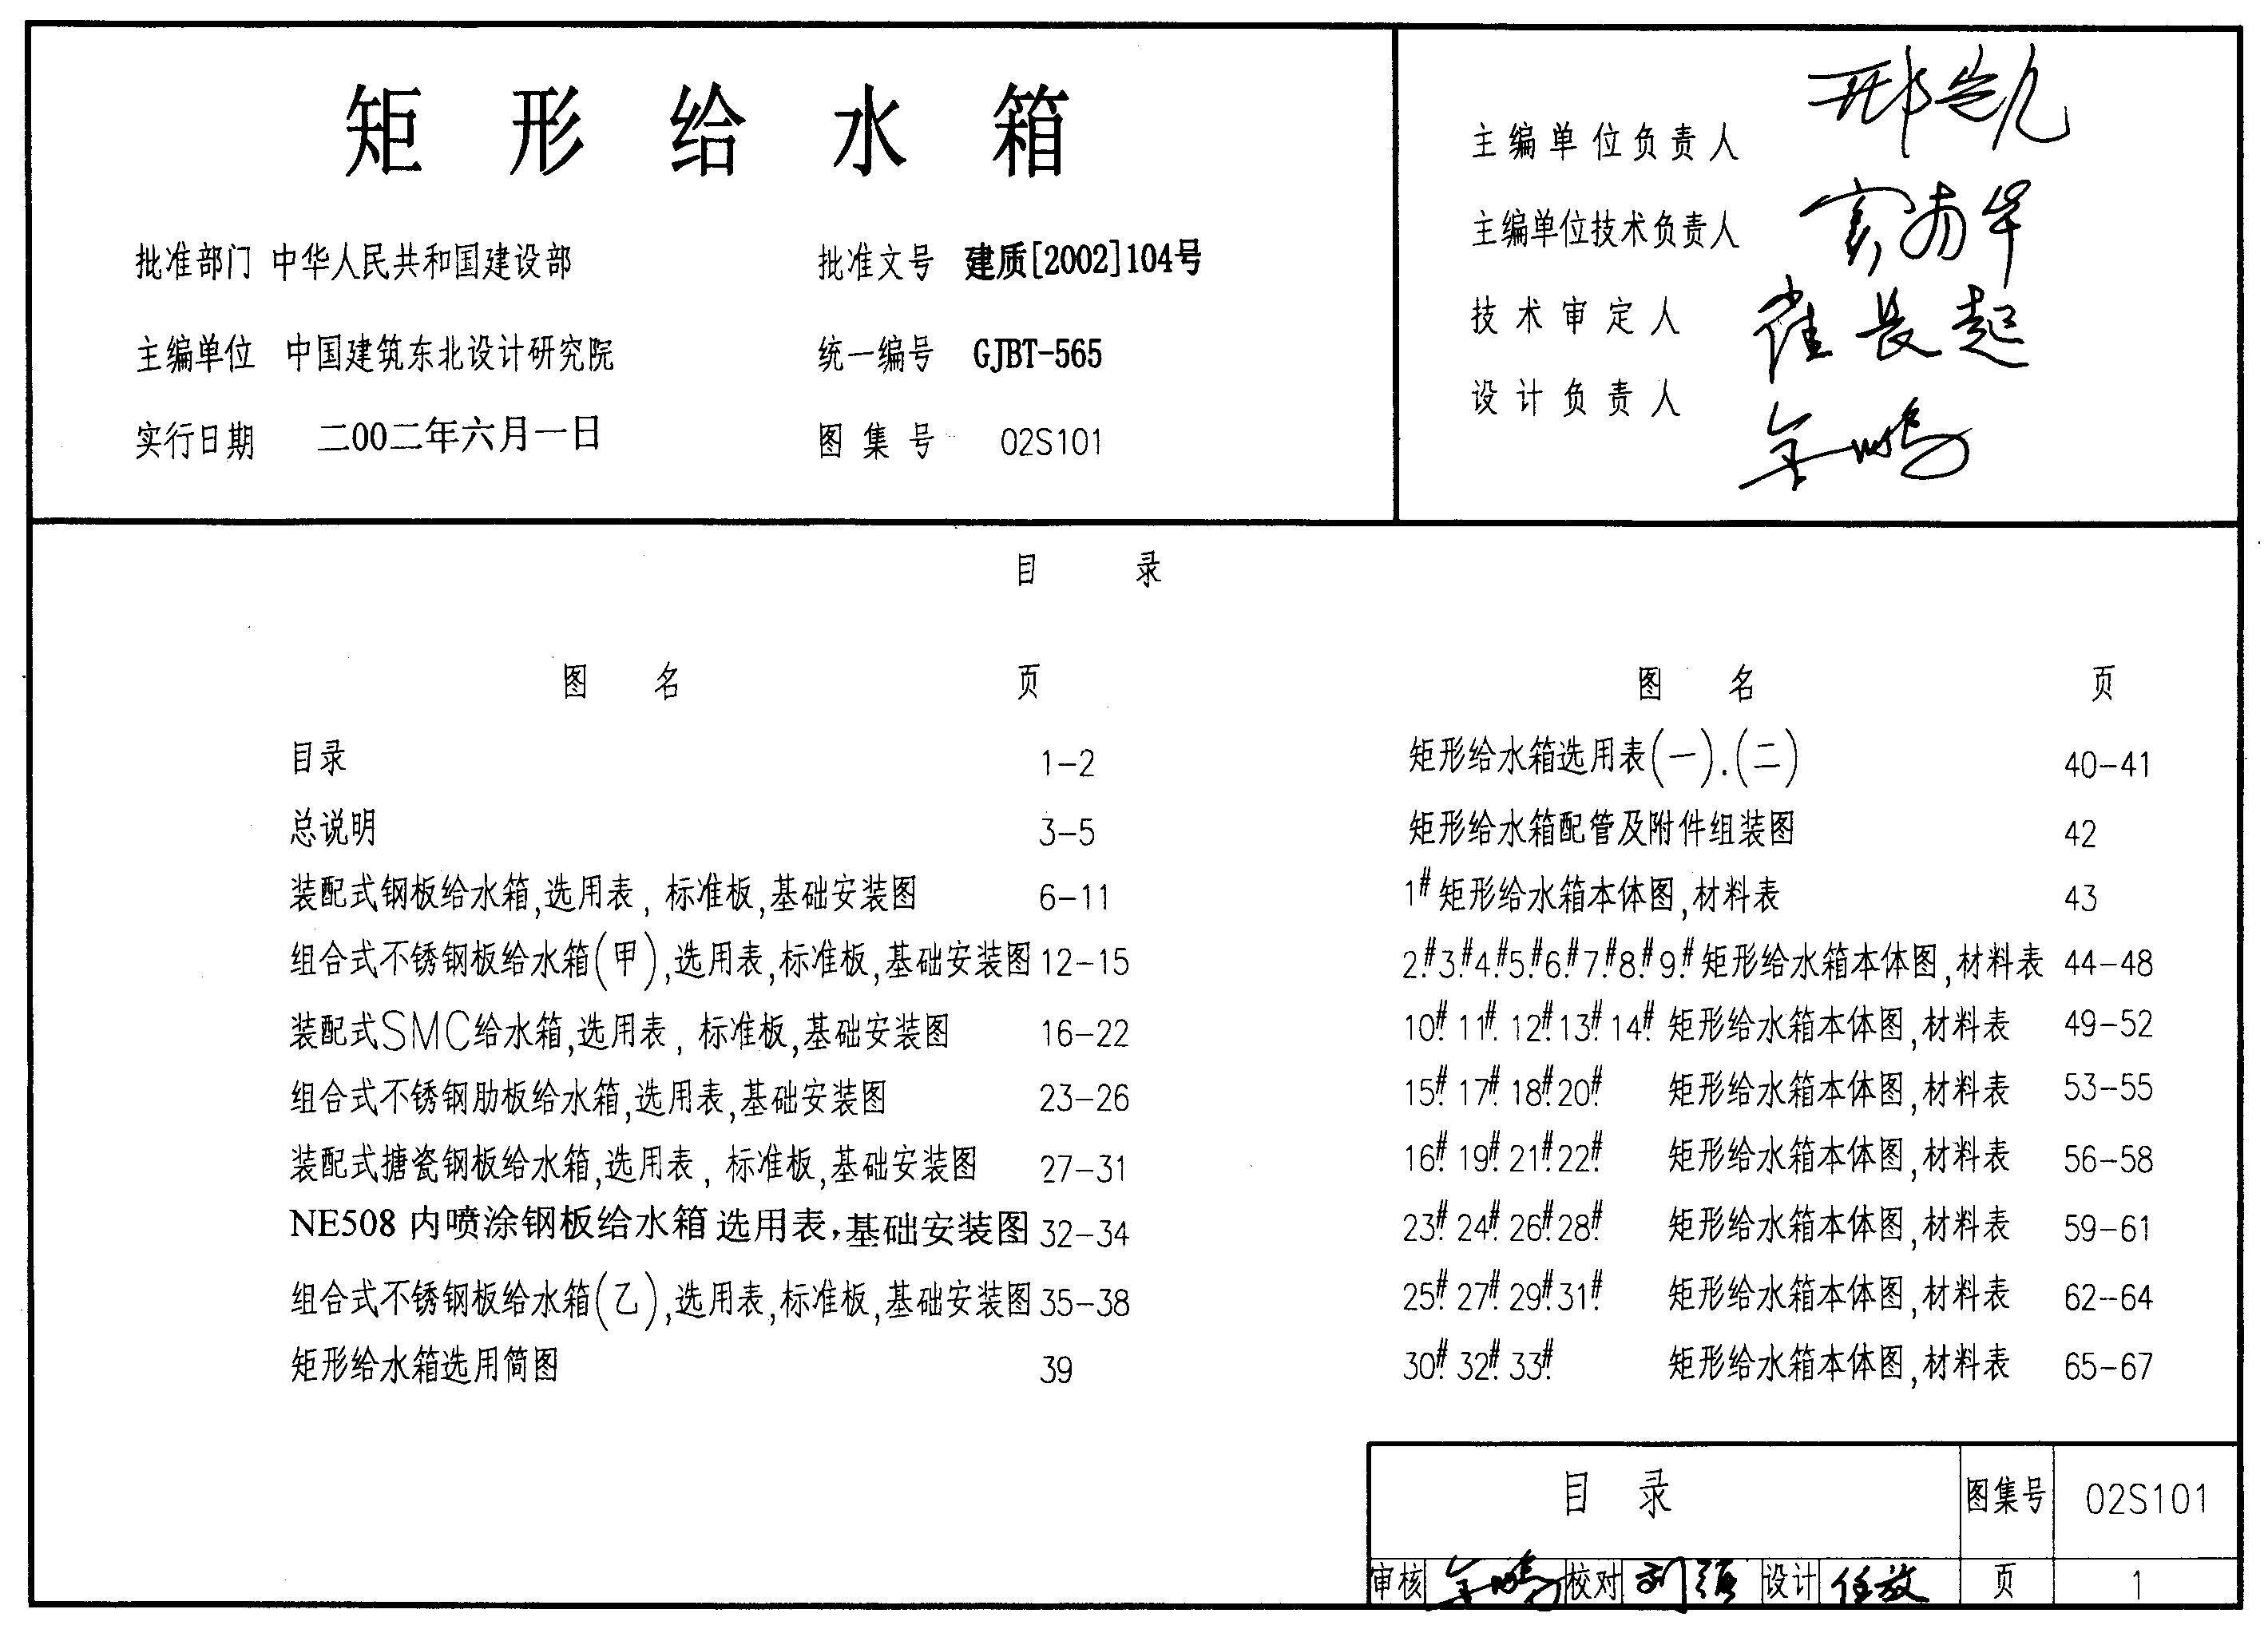 矩形给水箱
批准部门 中华人民共和国建设部 批准文号 建质[2002]104号
主编单位 中国建筑东北设计研究院 统一编号 GJBT-565
实行日期 二00二年六月一日 图集号 02S101
主编单位负责人
主编单位技术负责人
技术审定人 崔长起
设计负责人 金鹏
目 录
图 名 页
目录 1-2
总说明 3-5
装配式钢板给水箱,选用表,标准板,基础安装图 6-11
组合式不锈钢板给水箱(甲),选用表,标准板,基础安装图 12-15
装配式SMC给水箱,选用表,标准板,基础安装图 16-22
组合式不锈钢肋板给水箱,选用表,基础安装图 23-26
装配式搪瓷钢板给水箱,选用表,标准板,基础安装图 27-31
NE508内喷涂钢板给水箱 选用表,基础安装图 32-34
组合式不锈钢板给水箱(乙),选用表,标准板,基础安装图 35-38
矩形给水箱选用简图 39
图 名 页
矩形给水箱选用表(一).(二) 40-41
矩形给水箱配管及附件组装图 42
1#矩形给水箱本体图,材料表 43
2#.3#.4#.5#.6#.7#.8#.9#.矩形给水箱本体图,材料表 44-48
10#.11#.12#.13#.14#.矩形给水箱本体图,材料表 49-52
15#.17#.18#.20#. 矩形给水箱本体图,材料表 53-55
16#.19#.21#.22#. 矩形给水箱本体图,材料表 56-58
23#.24#.26#.28#. 矩形给水箱本体图,材料表 59-61
25#.27#.29#.31#. 矩形给水箱本体图,材料表 62-64
30#.32#.33#. 矩形给水箱本体图,材料表 65-67
目 录 图集号 02S101
审核 金鹏 校对 设计 任放 页 1